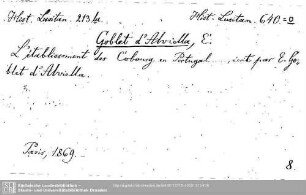 Hist. Lusitan. 213 k. Hist. Lusitan. 640=0
Goblet d'Alviella, E.
L'établissement des Cobourg en Portugal ... par E. Go-
blet d'Alviella.
Paris, 1869.
8
Sächsische Landesbibliothek -
Staats- und Universitätsbibliothek Dresden